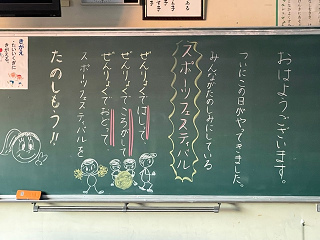 おはようございます。
ついにこの日がやってきました。
みんながたのしみにしている
スポーツフェスティバル
ぜんりょくではしって、
ぜんりょくでころがして
ぜんりょくでおどって
スポーツフェスティバルを
たのしもう!!
きがえ